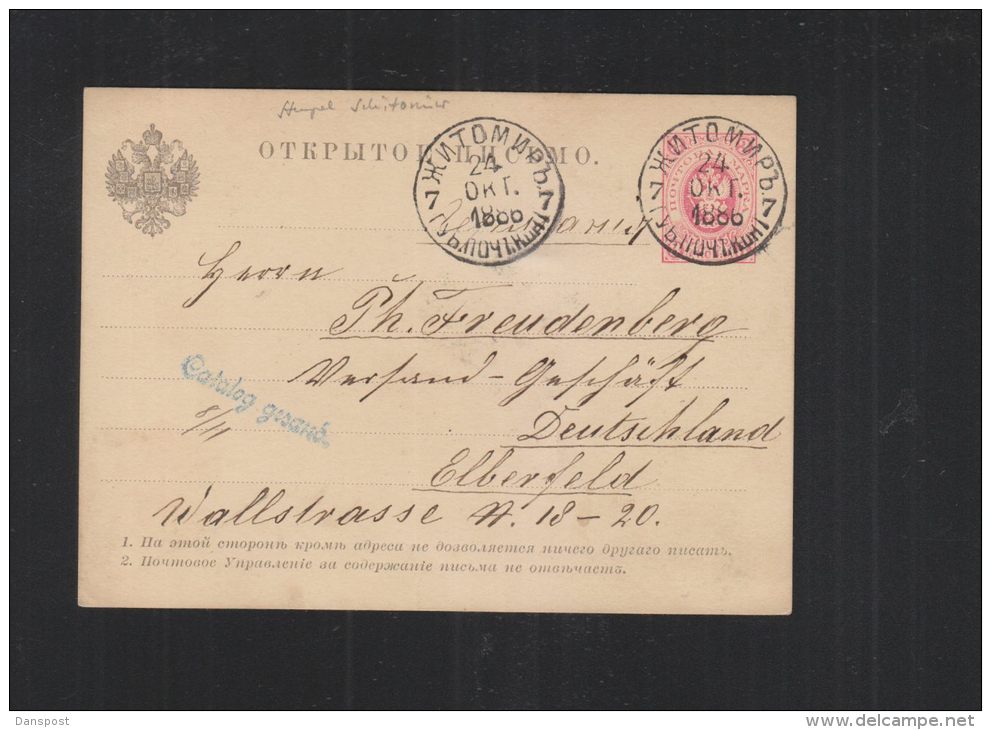 Hempel Schitomir
ОТКРЫТОЕ ПИСЬМО.
ЖИТОМИРЪ.
7 24 7
ОКТ.
1886
ЖИТОМИРЪ.
7 24 7
ОКТ.
1886
ПОЧТОВАЯ МАРКА
Германія
Herrn
Ph. Freudenberg
Versand-Geschäft
Catalog gesand.
8/11
Deutschland
Elberfeld
Wallstrasse N. 18-20.
1. На этой сторонѣ кромѣ адреса не дозволяется ничего другаго писать.
2. Почтовое Управленіе за содержаніе письма не отвѣчаетъ.
Danspost
delcampe.net